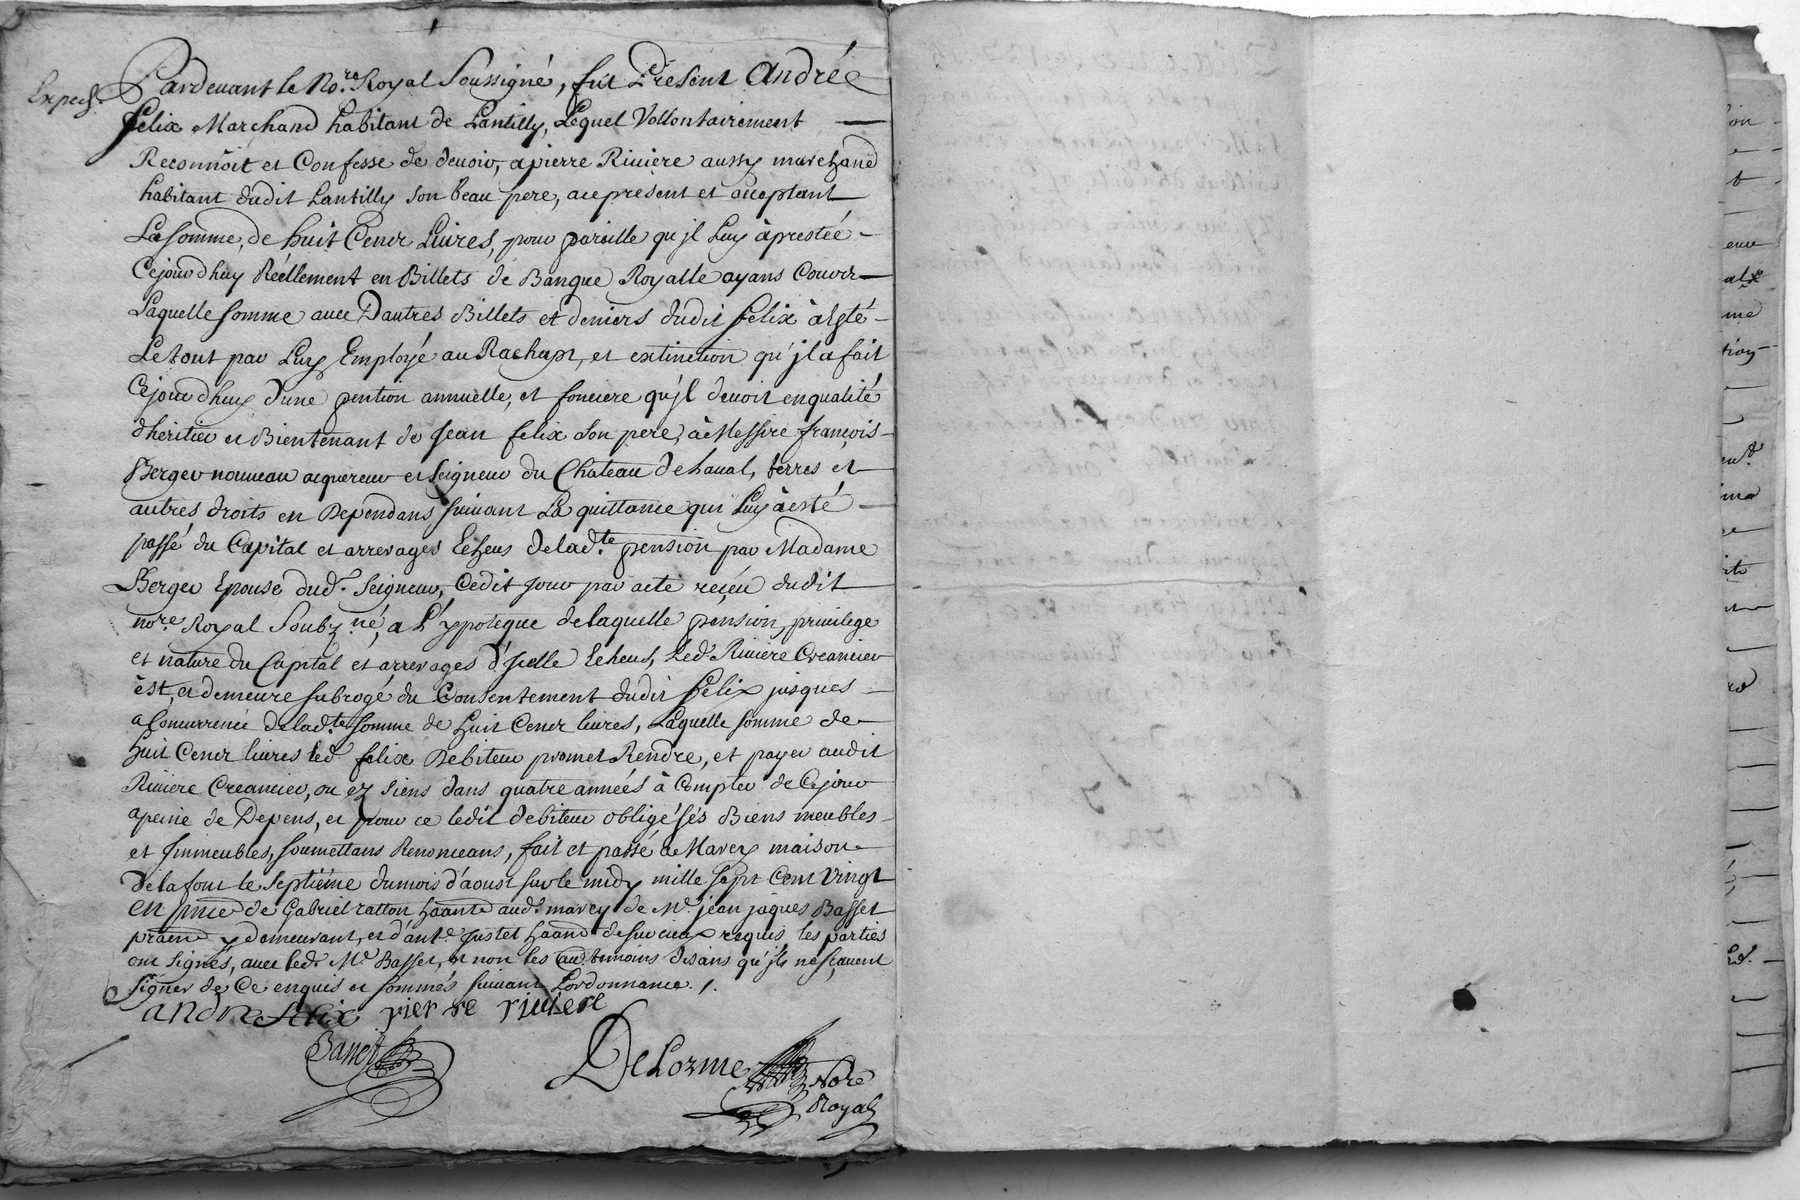 Expedié.
Pardevant le No.re Royal Soussigné, fut Present André
felix Marchand habitant de Lantilly, Lequel Vollontairement
Reconnoit et Confesse de devoir, a pierre Riviere aussy marchand
habitant dudit Lantilly son beau pere, ace present et acceptant
La somme, de huit Cent Livres, pour pareille qu'jl Luy à prestée
Cejourd'huy Réellement en Billets de Banque Royalle ayans Cours
Laquelle somme avec D'autres Billets et deniers dudit felix à esté
Le tout par Luy Employé au Rachapt, et extinction qu'jl a fait
Cejourd'huy d'une pention annuelle, et fonciere qu'jl devoit en qualité
d'heritier et Bientenant de jean felix son pere, à Messire françois
Berger nouveau acquereur et seigneur du Chateau de haval, terres et
autres droits en Dependans suivant La quittance qui Luy à esté
passé du Capital et arrerages Echeus de lad.te pension par Madame
Berger Epouse dud. seigneur, Cedit jour par acte reçeu dudit
no.re Royal Soubz.né, a L'ypoteque de laquelle pension, privilege
et nature du Capital et arrerages d'jcelle Echeus, led. Riviere Creancier
est, et demeure subrogé du Consentement dudit felix jusques
a Concurrence de lad.te somme de huit Cent livres, Laquelle somme de
huit Cent livres led. felix Debiteur promet Rendre, et payer audit
Riviere Creancier, ou ez siens dans quatre années à Compter de Cejour
a peine de Depens, et pour ce ledit debiteur obligé sés Biens meubles
et jmmeubles, soumettans Renonceans, fait et passé a Marcy maison
De la font le septiéme du mois d'aoust sur le midy mille sept Cent vingt
En pnce de Gabriel ratton haant aud. marcy de Me. jean jaques Basset
y demeurant, et d'ant.e justet haand de requis les parties
ont signés, avec led. Me. Basset, et non les temoins disans qu'jls ne sçavent
signer de Ce enquis et sommés suivant Lordonnance ./.
andre felix pierre riviere
Basset
DeLorme Nore
Royal